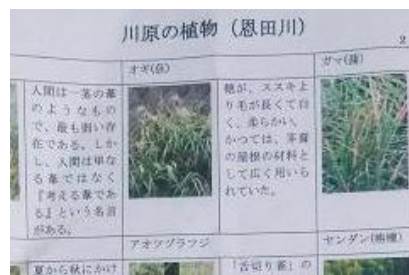 川原の植物（恩田川）
2
オギ(荻)
ガマ(蒲)
人間は一茎の葦
のようなもの
で、最も弱い存
在である。しか
し、人間は単な
る葦ではなく
『考える葦であ
る』という名言
がある。
穂が、ススキよ
り毛が長くて白
く、柔らかい。
かつては、茅葺
の屋根の材料と
して広く用いら
れていた。
アオツヅラフジ
センダン(栴檀)
夏から秋にかけ
「舌切り雀」の